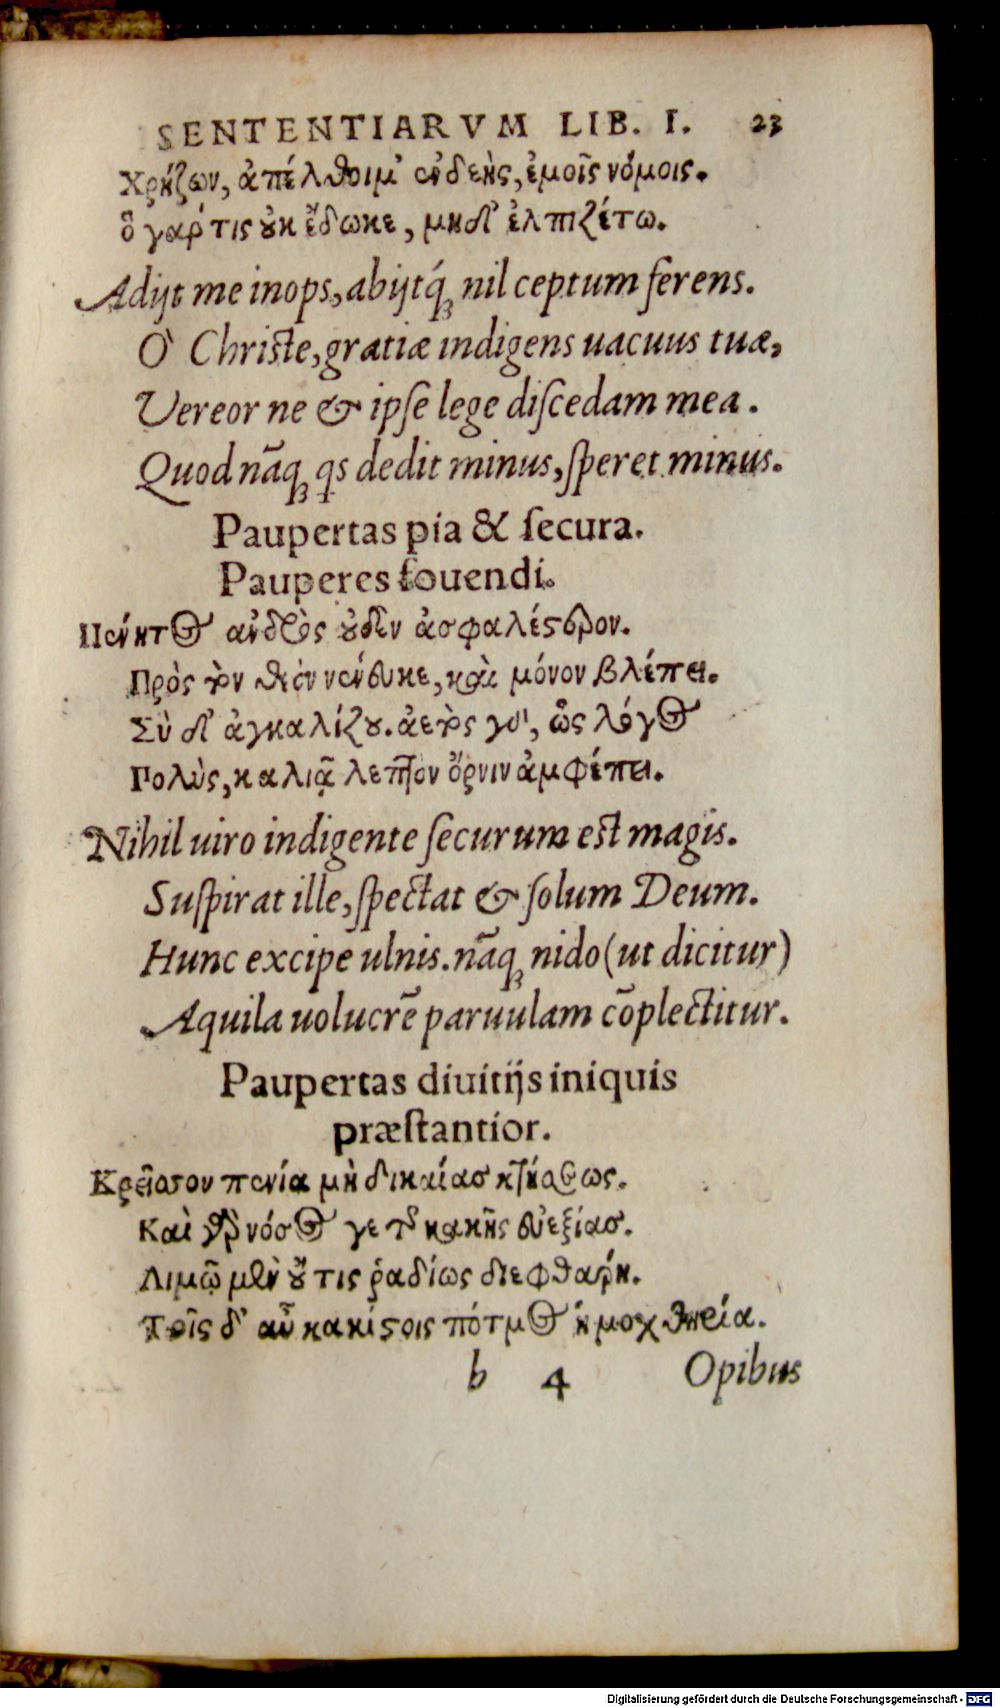 SENTENTIARVM LIB. I. 23
Χρήζων, ἀπέλθοιμ' ἐνδεὴς, ἐμοῖς νόμοις.
ὃ γάρ τις ȣκ ἔδωκε, μηδ' ἐλπιζέτω.
Adijt me inops, abijtq́ꝫ nil ceptum ferens.
O` Christe, gratiæ indigens uacuus tuæ,
Vereor ne & ipse lege discedam mea.
Quod nāqꝫ qs dedit minus, speret minus.
Paupertas pia & secura.
Pauperes fouendi.
Πένητος ἀνδρὸς ȣδὲν ἀσφαλέστερον.
Πρὸς τὸν θεὸν νένευκε, καὶ μόνον βλέπει.
Σὺ δ' ἀγκαλίζȣ. ἀετὸς γὰρ, ὡς λόγος
Πολὺς, καλιᾷ λεπτὸν ὄρνιν ἀμφέπει.
Nihil uiro indigente securum est magis.
Suspirat ille, spectat & solum Deum.
Hunc excipe ulnis. nāqꝫ nido (ut dicitur)
Aquila uolucrē paruulam cōplectitur.
Paupertas diuitijs iniquis
præstantior.
Κρεῖσσον πενία μὴ δικαίας κτήσεως.
Καὶ γὰρ νόσος γε τῆς κακῆς εὐεξίας.
Λιμῷ μὲν ȣ̓́ τις ῥᾳδίως διεφθάρη.
Τοῖς δ' αὖ κακίστοις πότμος ἡ μοχθηρία.
b 4 Opibus
Digitalisierung gefördert durch die Deutsche Forschungsgemeinschaft - DFG